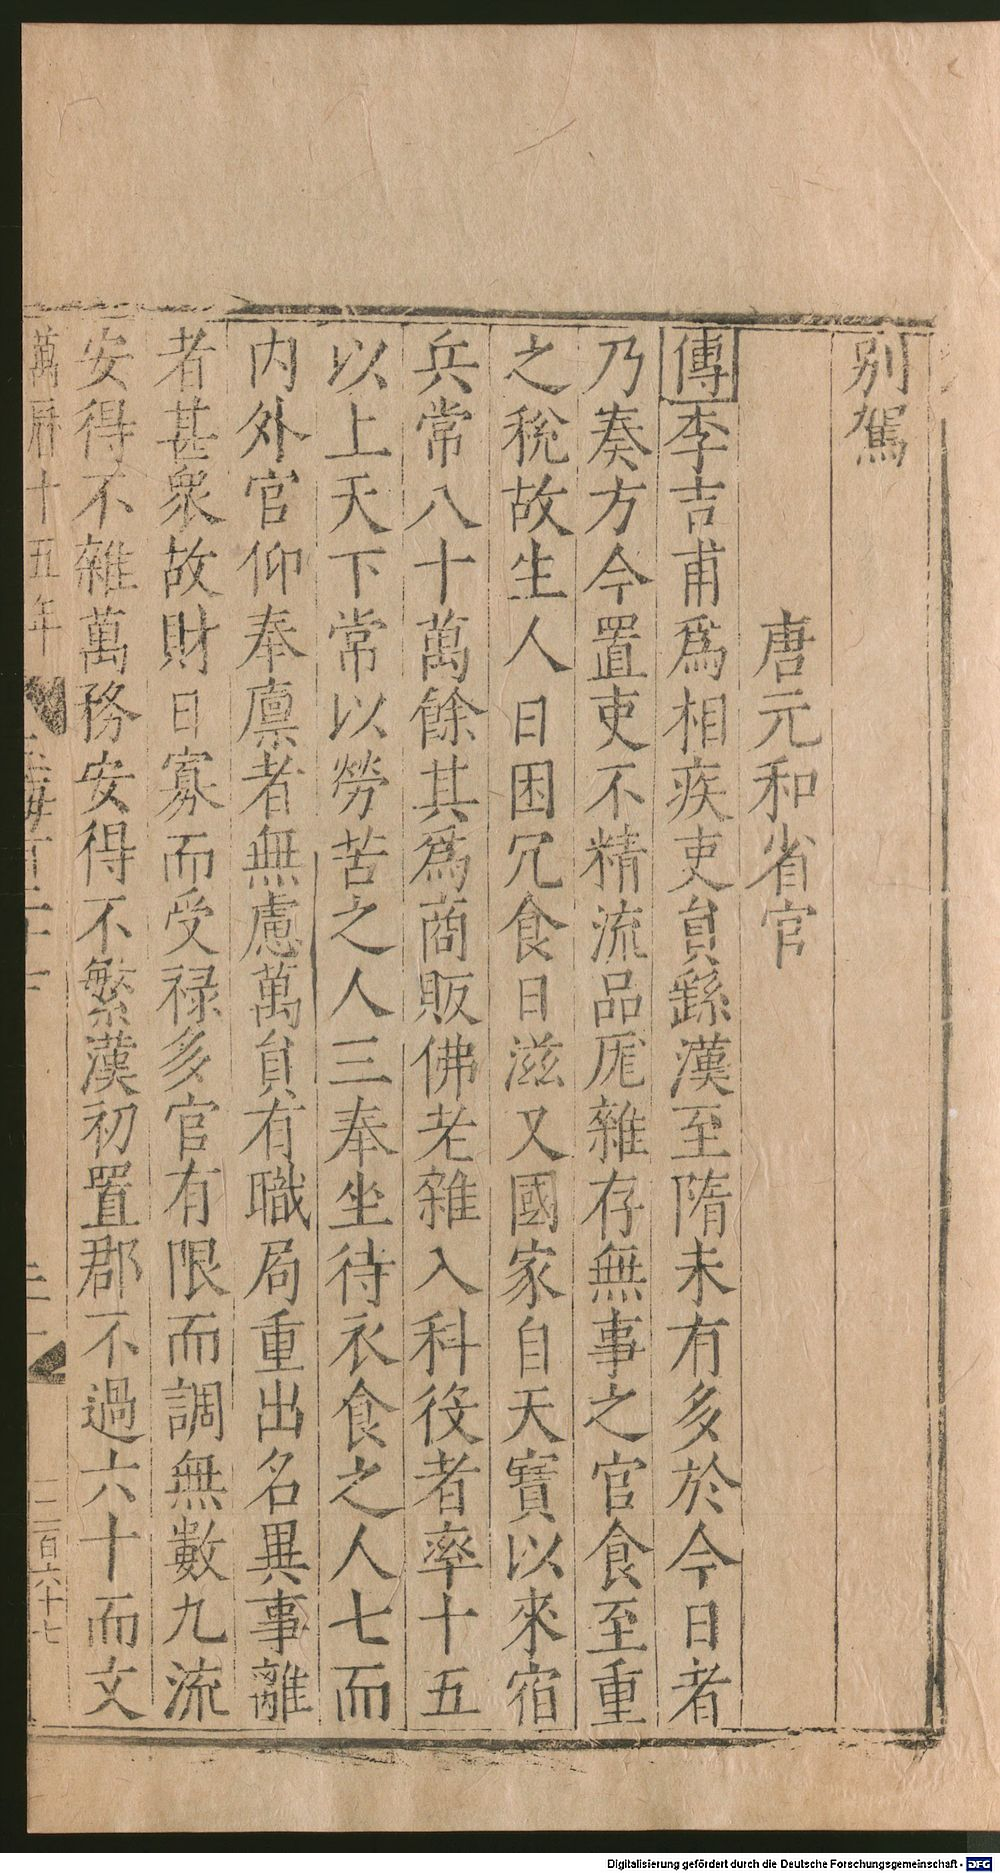 別駕
唐元和省官
傳李吉甫爲相疾吏員繇漢至隋未有多於今日者
乃奏方今置吏不精流品厖雜存無事之官食至重
之稅故生人日困冗食日滋又國家自天寶以來宿
兵常八十萬餘其爲商販佛老雜入科役者率十五
以上天下常以勞苦之人三奉坐待衣食之人七而
内外官仰奉廪者無慮萬員有職局重出名異事離
者甚衆故財日寡而受禄多官有限而調無數九流
安得不雜萬務安得不繁漢初置郡不過六十而文
萬曆十五年
百六十七
Digitalisierung gefördert durch die Deutsche Forschungsgemeinschaft - DFG